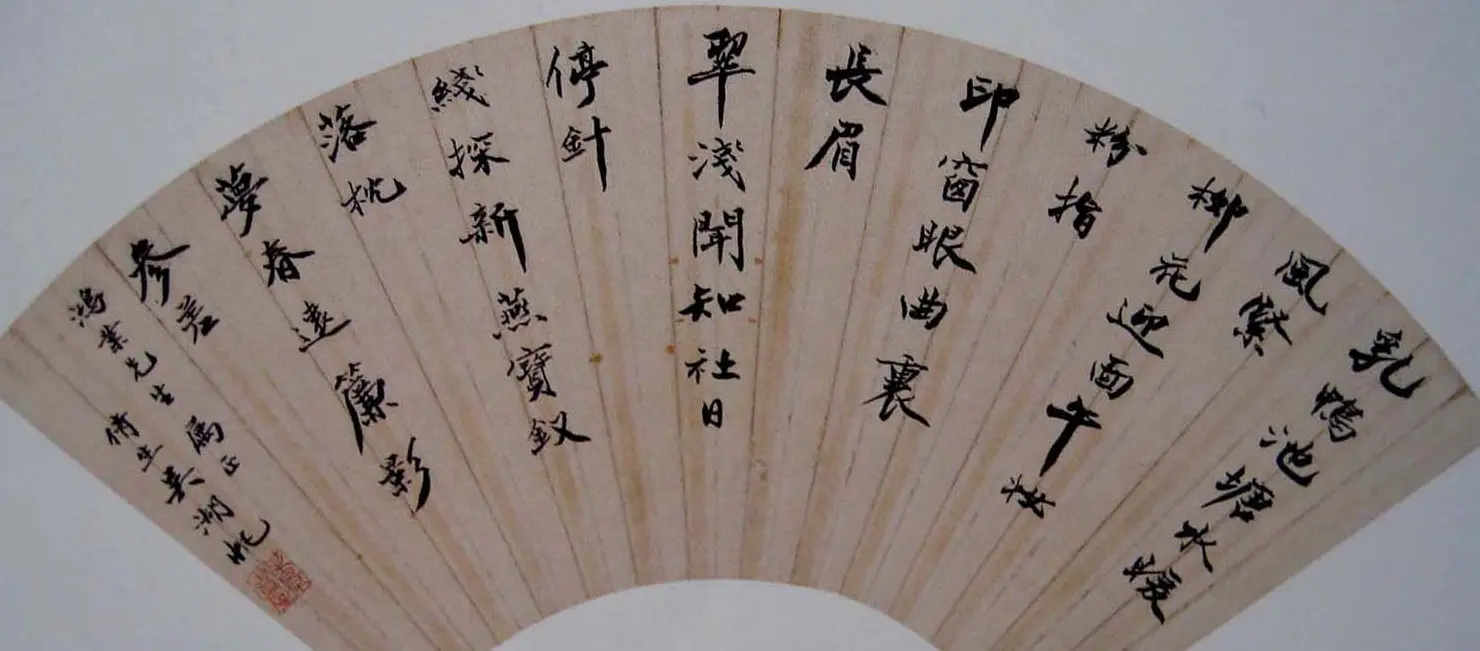 乳鴨池塘水暖
風緊
柳花迎面午妝
粉指
印窗眼曲裏
長眉
翠淺聞知社日
停針
綫探新燕寶釵
落枕
夢春遠簾影
參差
鴻業先生屬正
倩生吳湖帆